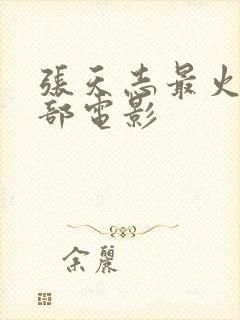 張天志最火
部電影
余麗